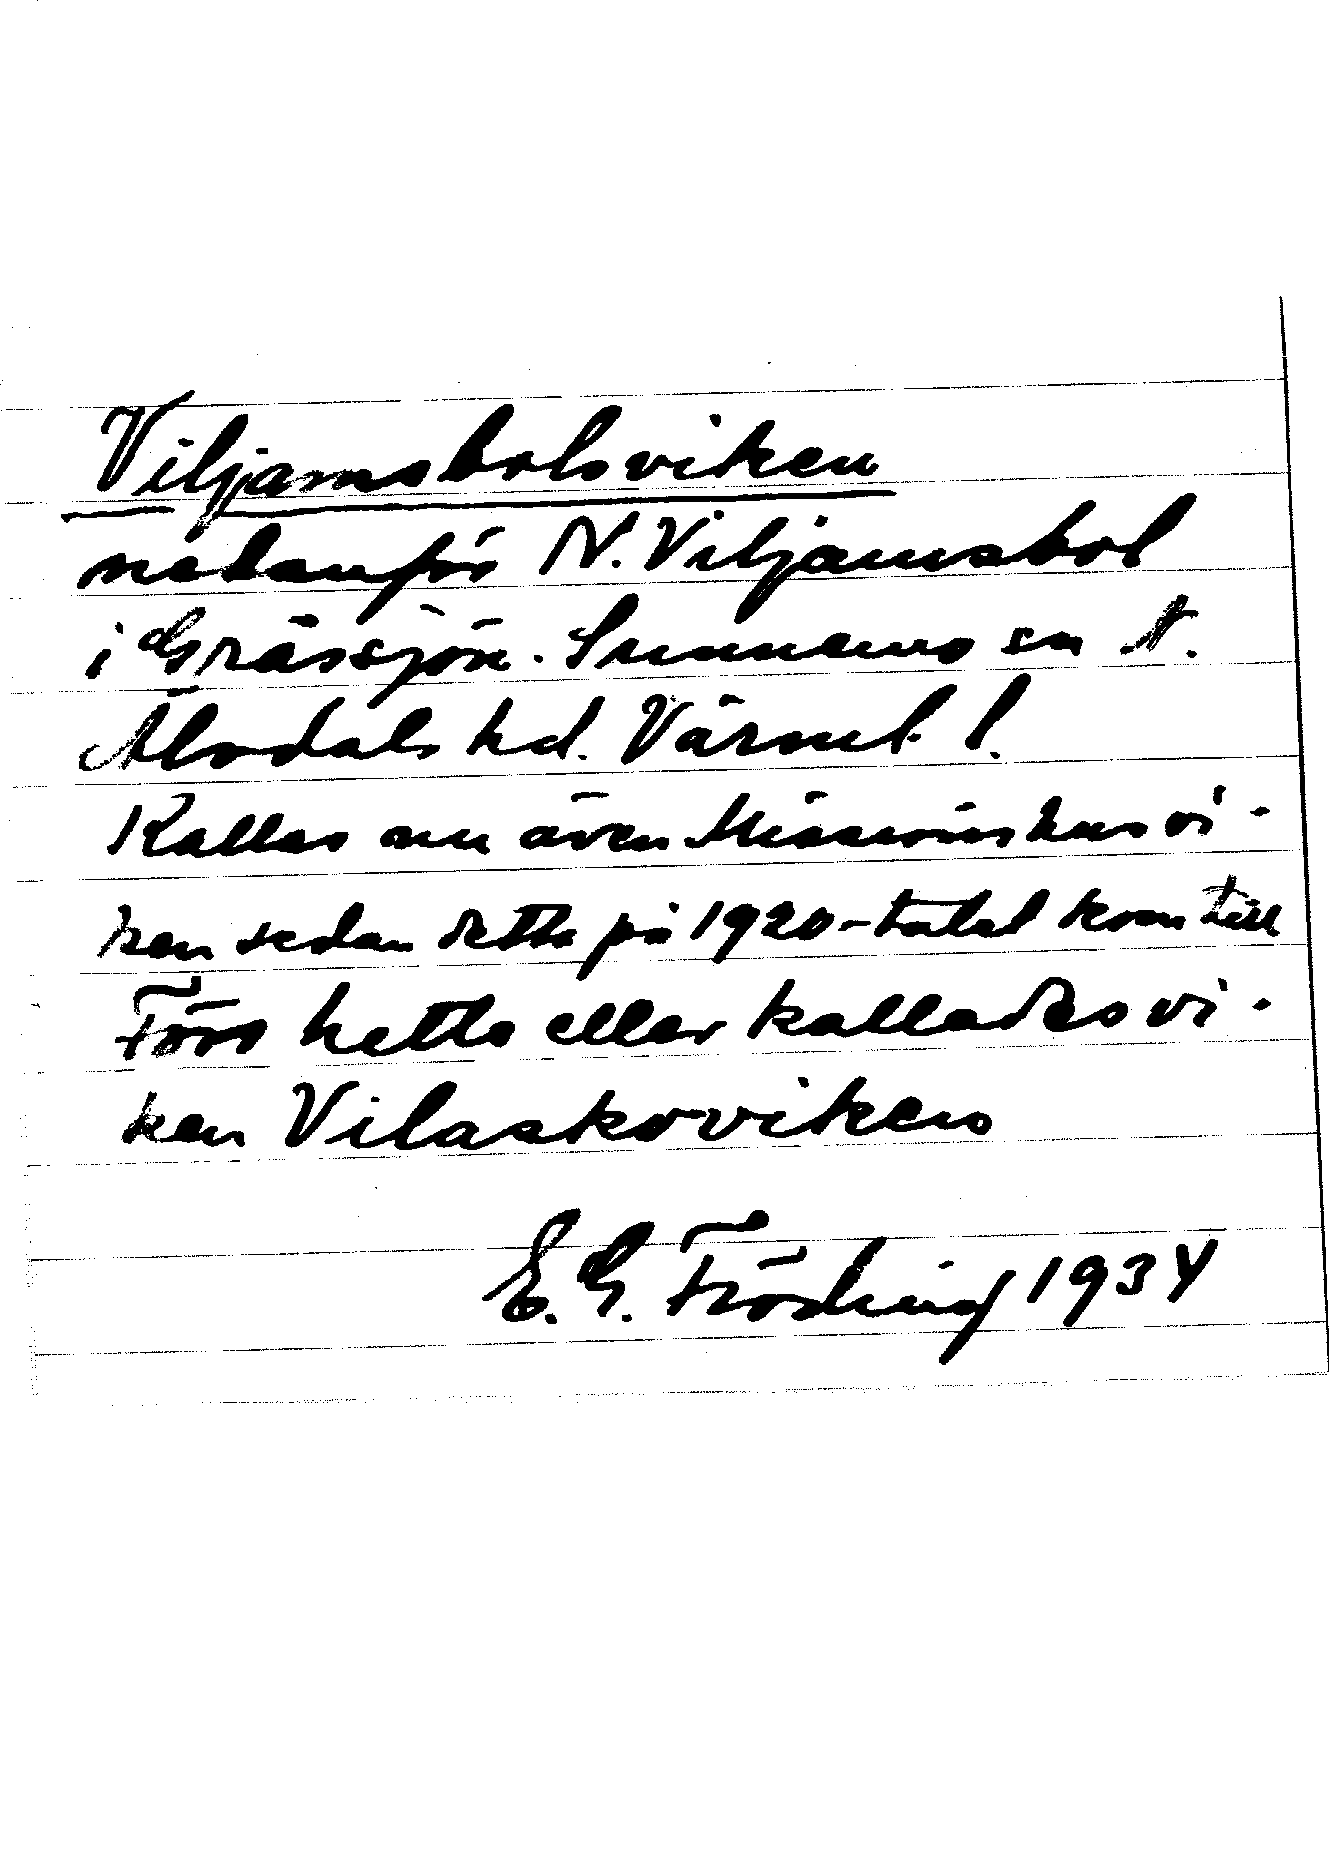 Viljamsbolsviken
nedanför N. Viljamsbol
i Grässjön. Sunnemo sn
Älvdals hd. Värml. l.
Kallas nu även Missionshusvi-
ken sedan detta på 1920-talet kom till
Förr hette eller kallades vi-
ken Vilaskoviken
E. G. Fröding 1934